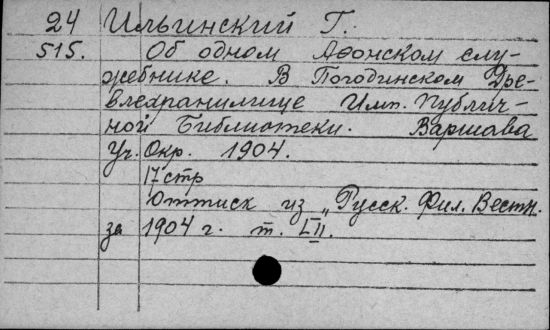 24 Ильинский Г.
515. Об одном Афонском слу-
жебнике. В Погодинском Дре-
влехранилище Имп. Публич-
ной Библиотеки. Варшава
Уч. Окр. 1904.
17 стр
Оттиск из „Русск. Фил. Вестн.
за 1904 г. т. LII.